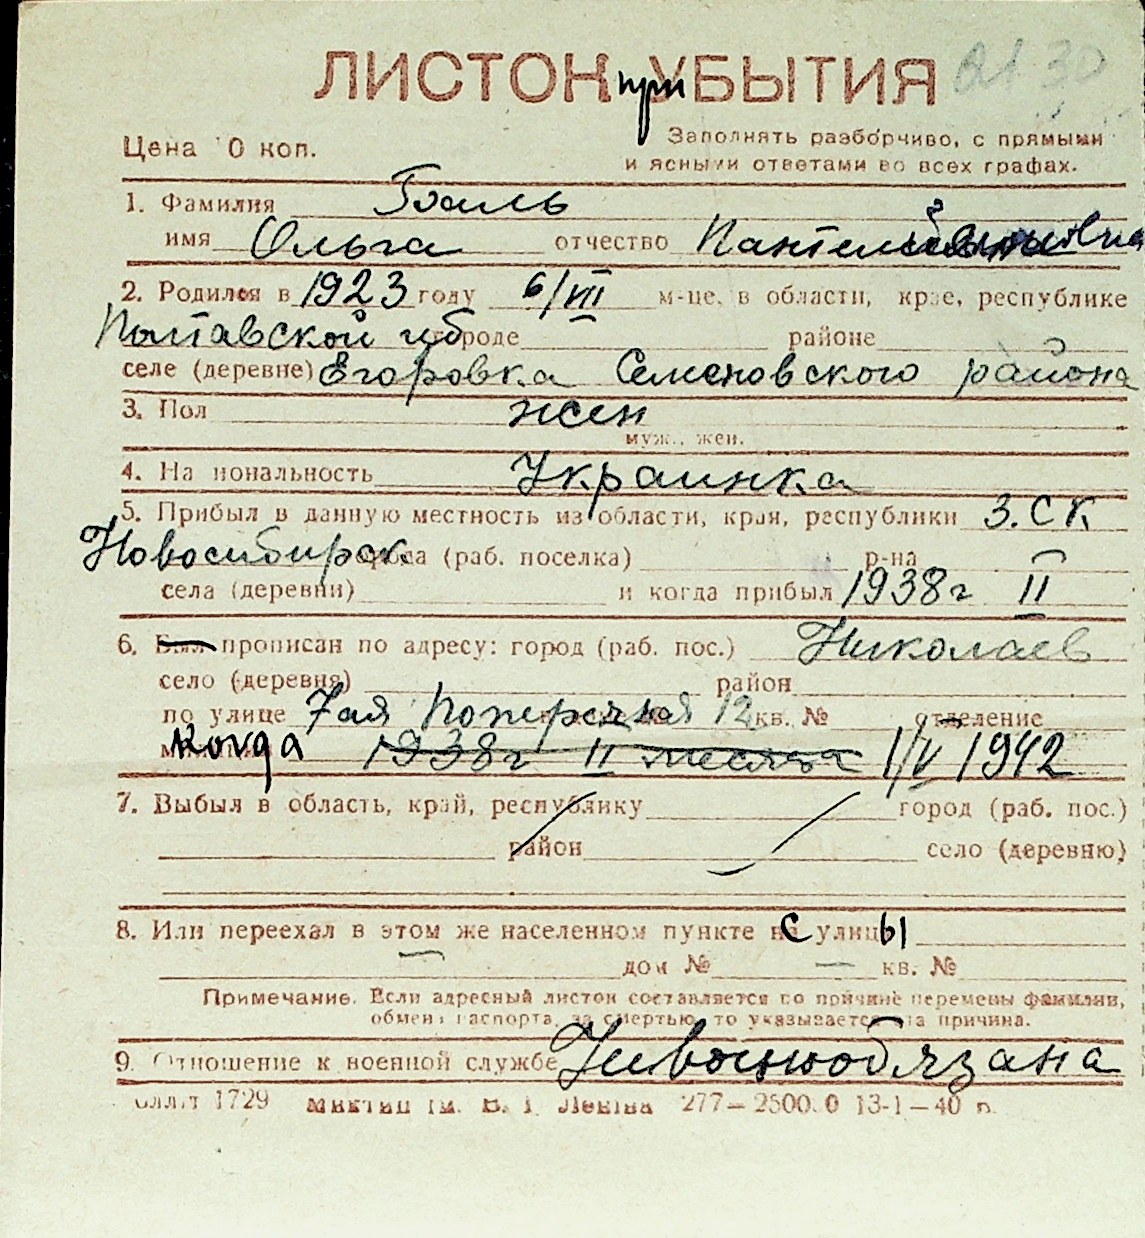 ЛИСТОК при УБЫТИЯ
Цена 10 коп.
Заполнять разборчиво, с прямыми
и ясными ответами во всех графах.
1. Фамилия Баль
имя Ольга отчество
2. Родился в 1923 году 6/VII м-це, в области, крае, республике
Полтавской губ городе районе
селе (деревне) Егоровка Семеновского района
3. Пол жен
муж., жен.
4. Национальность Украинка
5. Прибыл в данную местность из области, края, республики З.СК
Новосибирск города (раб. поселка) р-на
села (деревни) и когда прибыл 1938г II
6. Был прописан по адресу: город (раб. пос.) Николаев
село (деревня) район
по улице 7ая Поперечная 12 кв. № отделение
когда 1938г II месяца 1/V 1942
7. Выбыл в область, край, республику город (раб. пос.)
район село (деревню)
8. Или переехал в этом же населенном пункте с улицы
— дом № — кв. №
Примечание. Если адресный листок составляется по причине перемены фамилии,
обмена паспорта, за смертью, то указывается эта причина.
9. Отношение к военной службе Невоеннообязана
1729 им. В. І. Леніна 277—2500.0 13-1—40 р.